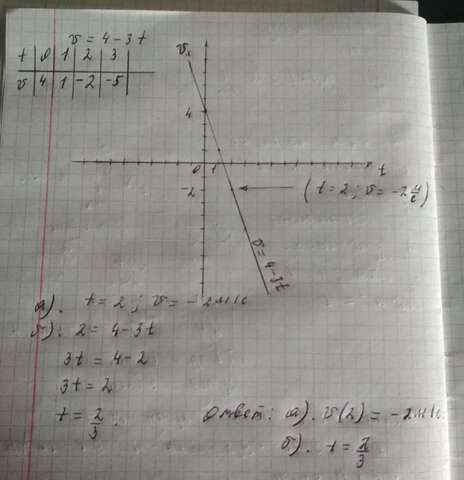 v = 4 - 3t
t 0 1 2 3
v 4 1 -2 -5
vₓ
4
0 1 t
-2
(t = 2 ; v = -2 м/с)
v = 4 - 3t
а). t = 2 ; v = -2 м/с
б). 2 = 4 - 3t
3t = 4 - 2
3t = 2
t = 2/3.
Ответ: а). v(2) = -2 м/с.
б). t = 2/3